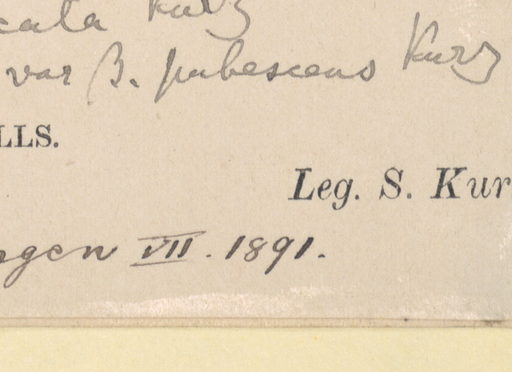 cata Kurz
var β. pubescens Kurz
LLS.
Leg. S. Kur
rgen VII. 1891.